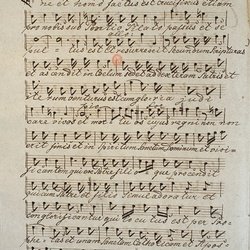 ne et homo factus est crucifixus etiam
pro nobis sub Pontio Pilato passus et se
pul tus est et resurrexit secundum scripturas
et ascendit in coelum sedet ad dexteram Patris et
ite rum venturus est cum gloria judi
care vivos et mortuos cujus regni non
erit finis et in Spiritum Sanctum Dominum et vivi
ficantem qui ex Patre filio que procedit
qui cum Patre et Filio simul adoratur et
conglorificatur qui locutus est per Pro
phetas et unam Sanctam Catholicam et Apos